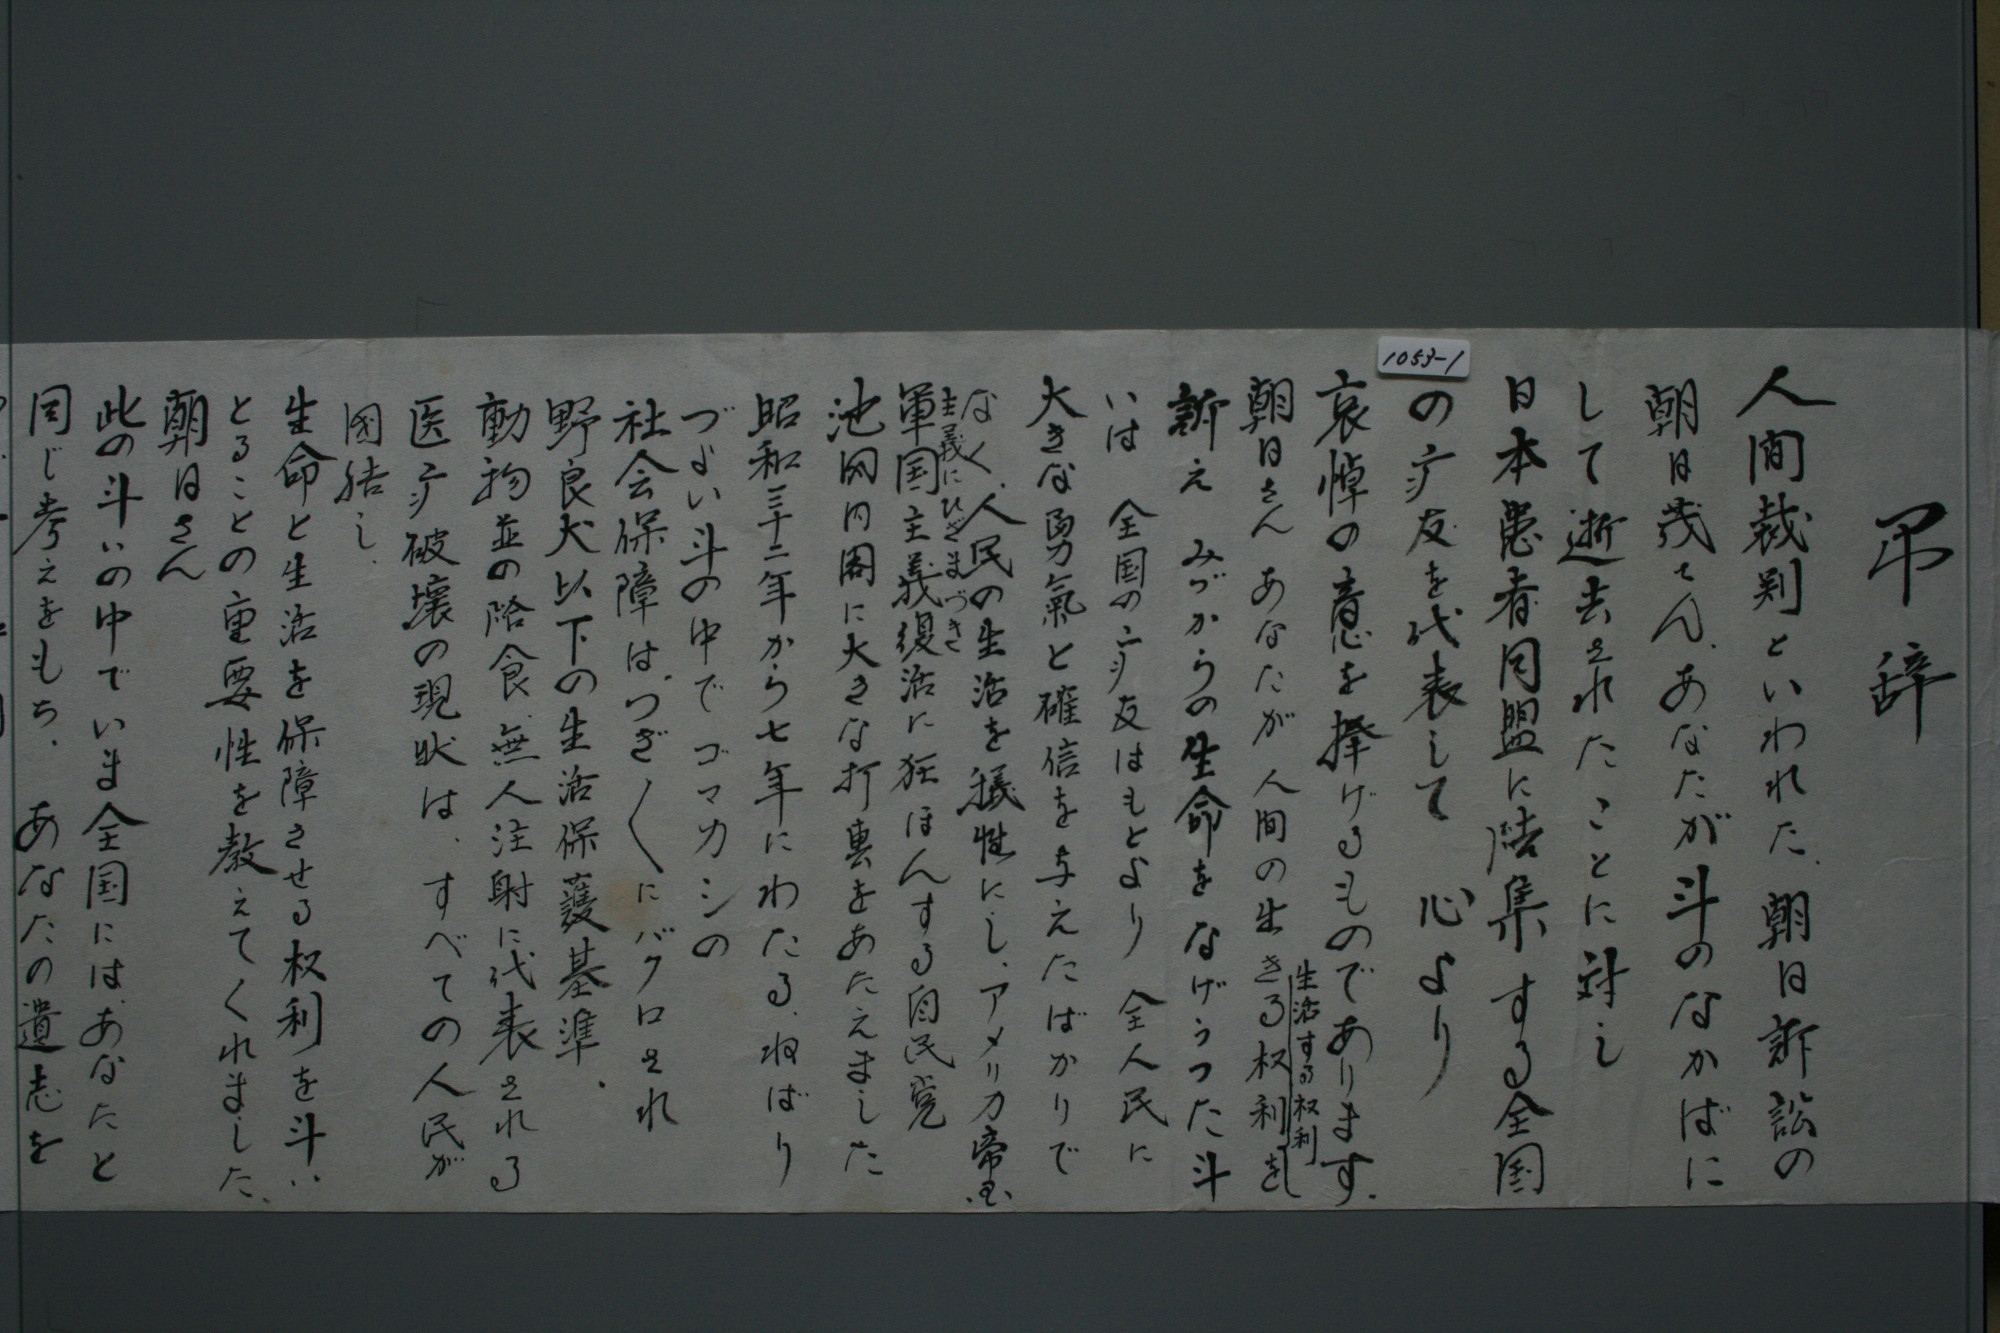 弔辞
人間裁判といわれた、朝日訴訟の
朝日茂さん、あなたが斗のなかばに
して逝去されたことに対し
日本患者同盟に結集する全国
の疒友を代表して 心より
1053-1
哀悼の意を捧げるものであります。
生活する权利
朝日さん あなたが 人間の生きる权利を
訴え みづからの生命をなげうった斗
いは 全国の疒友はもとより 全人民に
大きな勇氣と確信を与えたばかりで
なく、人民の生活を犠牲にし、アメリカ帝国
主義にひざまづき
軍国主義復活に狂ほんする自民党
池田内閣に大きな打裏をあたえました
昭和三十二年から七年にわたる、ねばり
づよい斗の中でゴマカシの
社会保障は、つぎ〱にバクロされ
野良犬以下の生活保護基準、
動物並の給食、無人注射に代表される
医疒破壊の現状は、すべての人民が
団結し、
生命と生活を保障させる权利を斗い
とることの重要性を教えてくれました、
朝日さん
此の斗いの中でいま全国には、あなたと
同じ考えをもち、あなたの遺志を